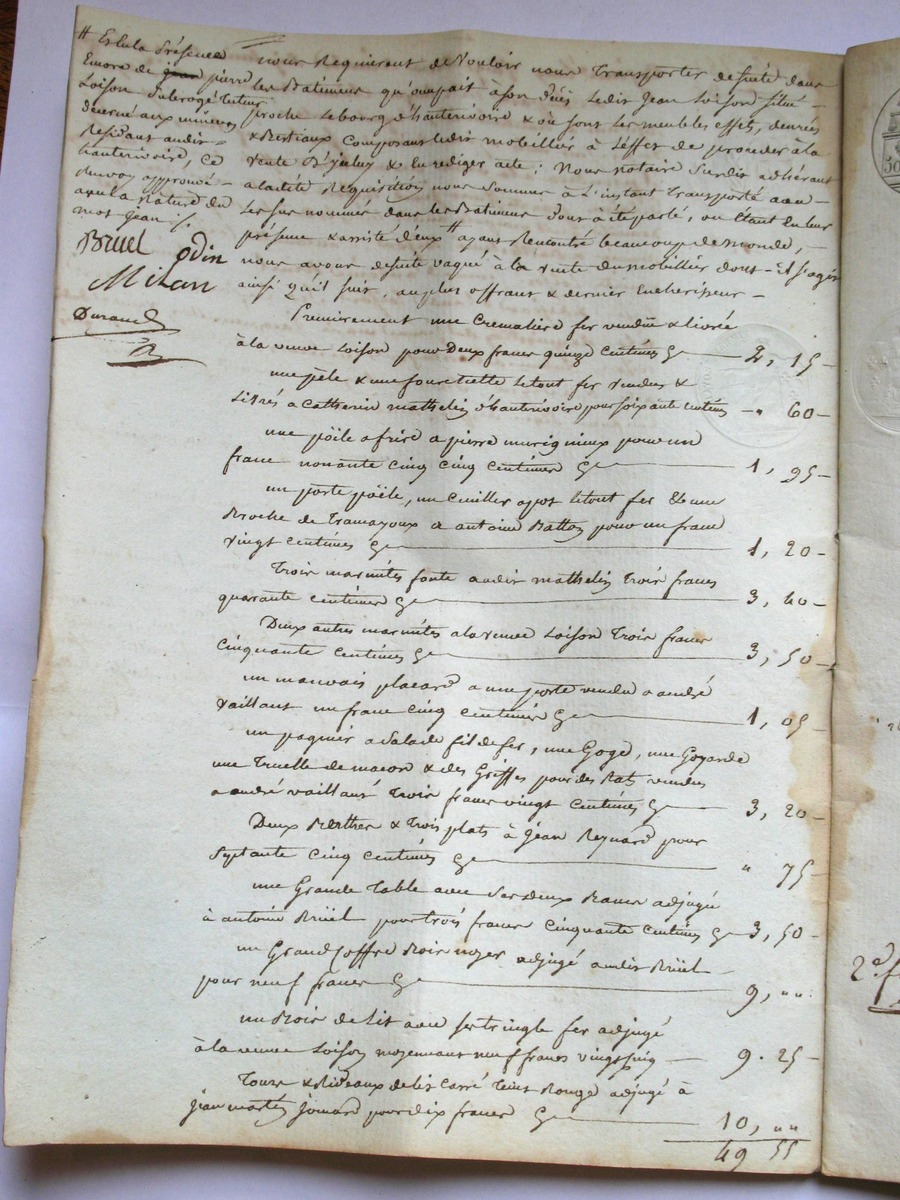 # Et la présence
Encore de jean pierre
Loison subrogé tuteur
décerné aux mineurs
Résidant audit
hauterivoire, Ce
Renvoy approuvé
avec la Rature du
mot Jean /.
Bruel Odin
Milan
Durand
nous Requierent de vouloir nous Transporter de suite dans
les Batimens qu'occupait à son décès ledit Jean Loison situé
proche Lebourg d'hauterivoire & où sont les meubles effets, denrées
& Bestiaux Composant ledit mobillier à l'effet de proceder à la
vente d'iceluy & en rediger acte ; Nous notaire susdit adhérant
a ladite Requisition nous sommes à L'instant Transporté avec
les sus nommés dans les Batimens dont à été parlé, ou étant en leur
présence & assisté d'eux # ayant Rencontré beaucoup de monde,
nous avons de suite vaqué à la vente du mobillier dont il s'agit
ainsi qu'il suit, au plus offrant & dernier Encherisseur
Premierement une Cremalière fer vendue & livrée
à la veuve Loison pour Deux francs quinze Centimes 2, 15
une pèle & une fourcitette Le tout fer vendus &
Livrés a Catherin mathelin d'hauterivoire pour soixante centimes " 60
une pöile a frire a pierre murigneux pour un
franc nonante cinq cinq centimes 1, 95
un porte pöële, un Cuiller a pot le tout fer & une
Broche de Tramayoux a antoine Batton pour un franc
vingt centimes 1, 20
Trois marmites fonte audit mathelin Trois francs
quarante centimes 3, 40
Deux autres marmites a la veuve Loison Trois francs
cinquante centimes 3, 50
un mauvais placard a une porte vendu a andré
vaillant un franc cinq centimes 1, 05
un pagnier a Salade fil de fer, une Goge, une Goyarde
une Truelle de macon & des Griffes pour des Rats vendus
a andré vaillant Trois francs vingt centimes 3, 20
Deux & Trois plats à Jean Reynard pour
Septante Cinq centimes " 75
une Grande Table avec ses Deux Bancs adjugé
à antoine Brüel pour trois francs Cinquante centimes 3, 50
un Grand Coffre Bois noyer adjugé audit Brüel
pour neuf francs 9, " "
un Bois de lit avec ses tringle fer adjugé
à la veuve Loison moyennant neuf francs vingt cinq 9. 25
Tours & Rideaux de lit carré Teint Rouge adjugé à
Jean Martin Jomard pour dix francs 10, " "
49 55
2e. f